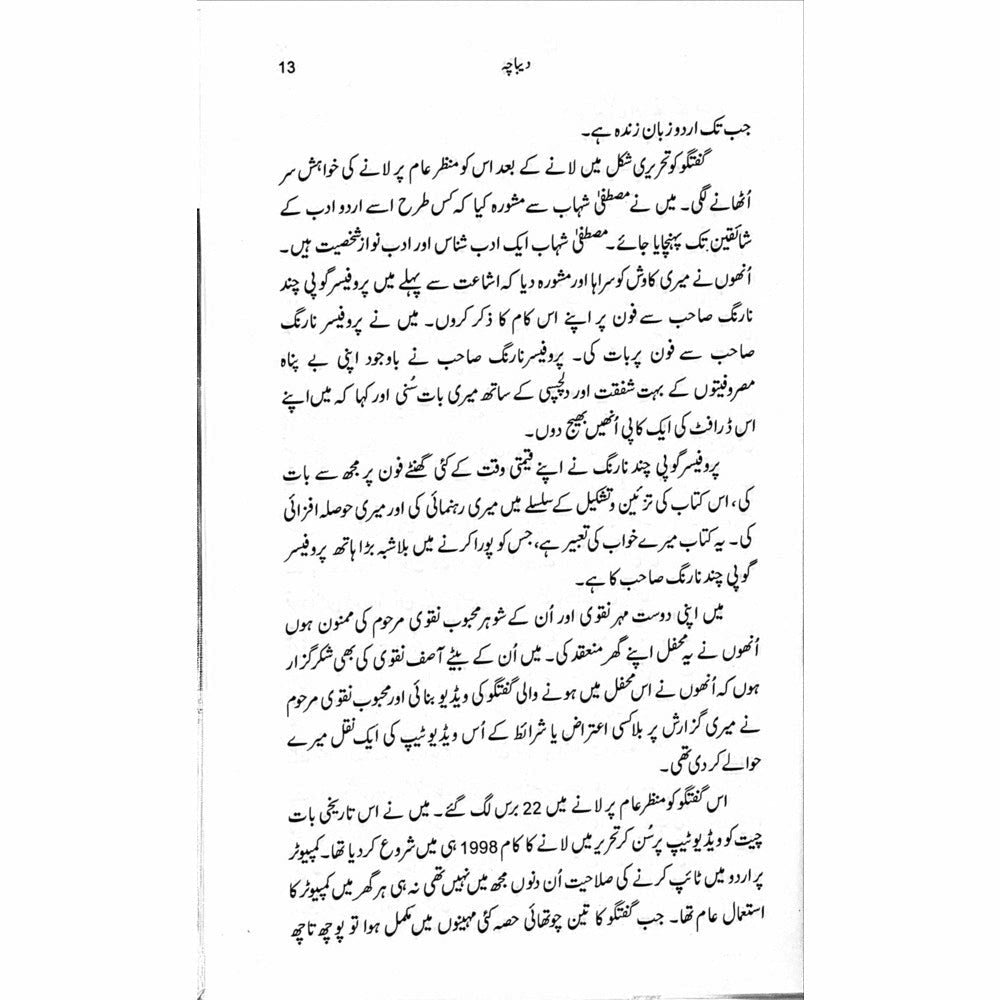 دیباچہ 13
جب تک اردو زبان زندہ ہے۔
گفتگو کو تحریری شکل میں لانے کے بعد اس کو منظر عام پر لانے کی خواہش سر
اُٹھانے لگی۔ میں نے مصطفیٰ شہاب سے مشورہ کیا کہ کس طرح اسے اردو ادب کے
شائقین تک پہنچایا جائے۔ مصطفیٰ شہاب ایک ادب شناس اور ادب نواز شخصیت ہیں۔
اُنھوں نے میری کاوش کو سراہا اور مشورہ دیا کہ اشاعت سے پہلے میں پروفیسر گوپی چند
نارنگ صاحب سے فون پر اپنے اس کام کا ذکر کروں۔ میں نے پروفیسر نارنگ
صاحب سے فون پر بات کی۔ پروفیسر نارنگ صاحب نے باوجود اپنی بے پناہ
مصروفیتوں کے بہت شفقت اور دلچسپی کے ساتھ میری بات سُنی اور کہا کہ میں اپنے
اس ڈرافٹ کی ایک کاپی اُنھیں بھیج دوں۔
پروفیسر گوپی چند نارنگ نے اپنے قیمتی وقت کے کئی گھنٹے فون پر مجھ سے بات
کی، اس کتاب کی تزئین و تشکیل کے سلسلے میں میری رہنمائی کی اور میری حوصلہ افزائی
کی۔ یہ کتاب میرے خواب کی تعبیر ہے، جس کو پورا کرنے میں بلاشبہ بڑا ہاتھ پروفیسر
گوپی چند نارنگ صاحب کا ہے۔
میں اپنی دوست مہر نقوی اور اُن کے شوہر محبوب نقوی مرحوم کی ممنون ہوں
اُنھوں نے یہ محفل اپنے گھر منعقد کی۔ میں اُن کے بیٹے آصف نقوی کی بھی شکر گزار
ہوں کہ اُنھوں نے اس محفل میں ہونے والی گفتگو کی ویڈیو بنائی اور محبوب نقوی مرحوم
نے میری گزارش پر بلا کسی اعتراض یا شرائط کے اُس ویڈیو ٹیپ کی ایک نقل میرے
حوالے کر دی تھی۔
اس گفتگو کو منظر عام پر لانے میں 22 برس لگ گئے۔ میں نے اس تاریخی بات
چیت کو ویڈیو ٹیپ پر سُن کر تحریر میں لانے کا کام 1998 ہی میں شروع کر دیا تھا۔ کمپیوٹر
پر اردو میں ٹائپ کرنے کی صلاحیت اُن دنوں مجھ میں نہیں تھی نہ ہی ہر گھر میں کمپیوٹر کا
استعمال عام تھا۔ جب گفتگو کا تین چوتھائی حصہ کئی مہینوں میں مکمل ہوا تو پوچھ تاچھ